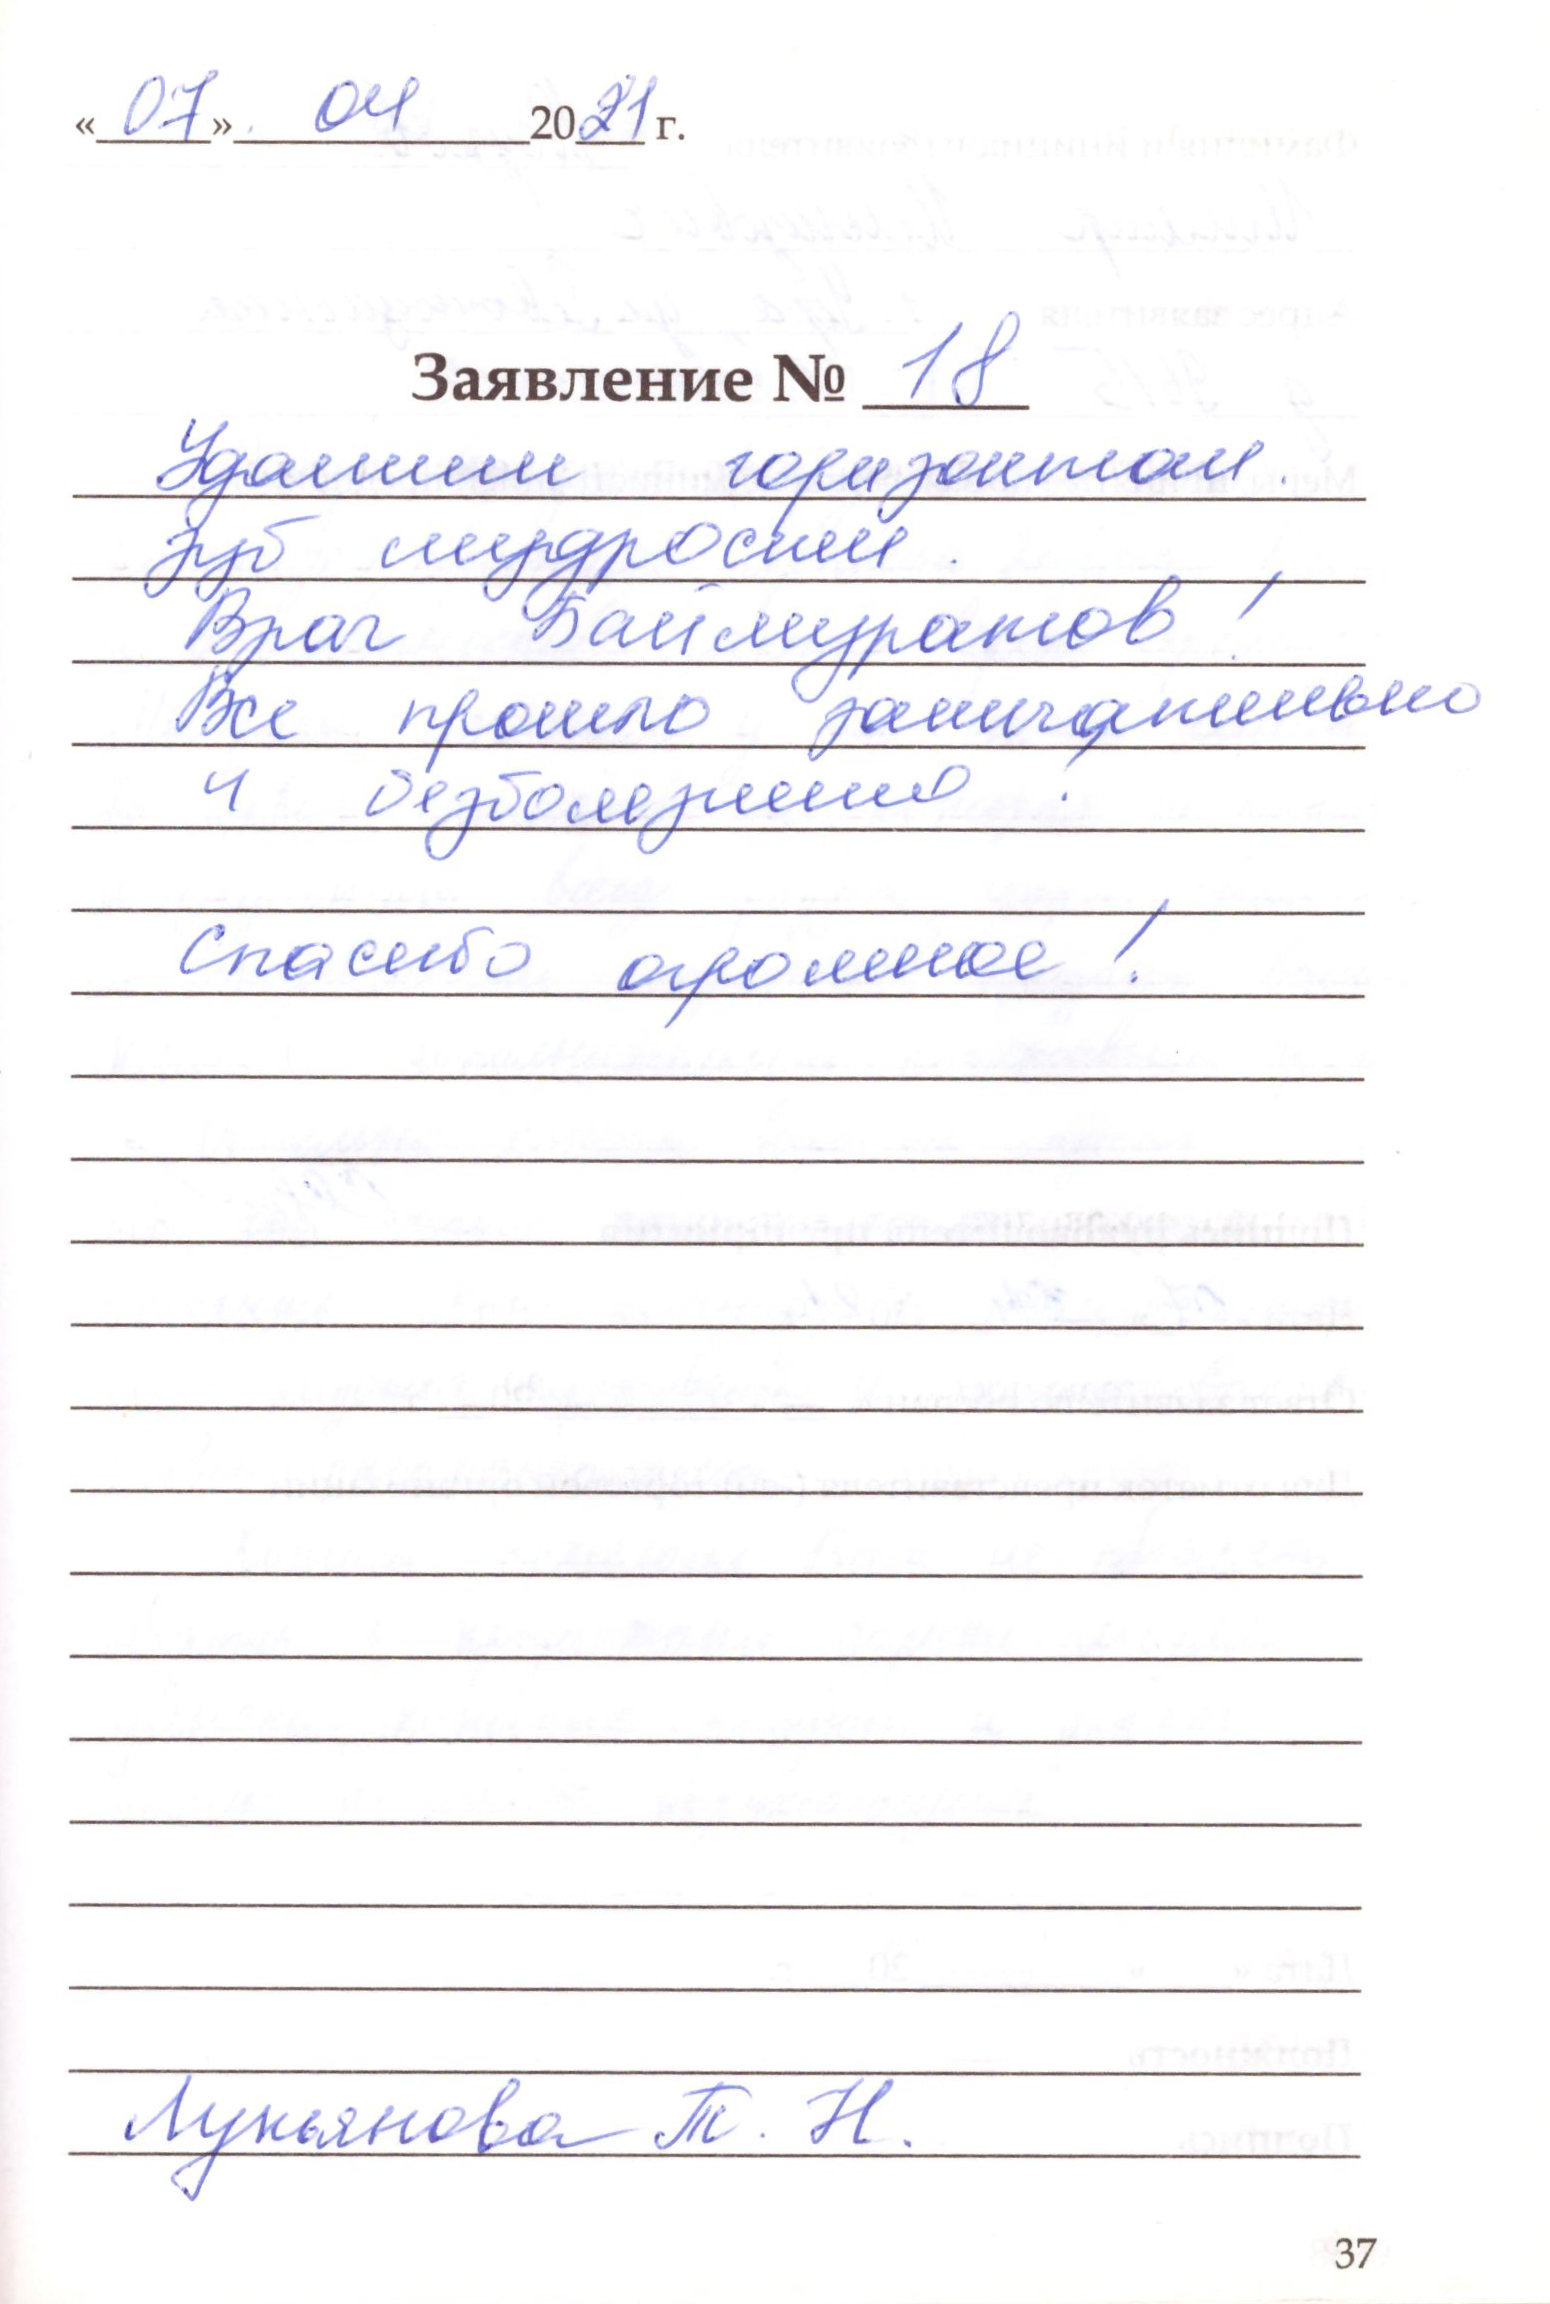 «07». 04 2021 г.
Заявление № 18
Удалили горизонтал.
зуб мудрости.
Врач Баймуратов!
Все прошло замичательно
и безболезненно!
Спасибо огромное!
Лукьянова Т. Н.
37